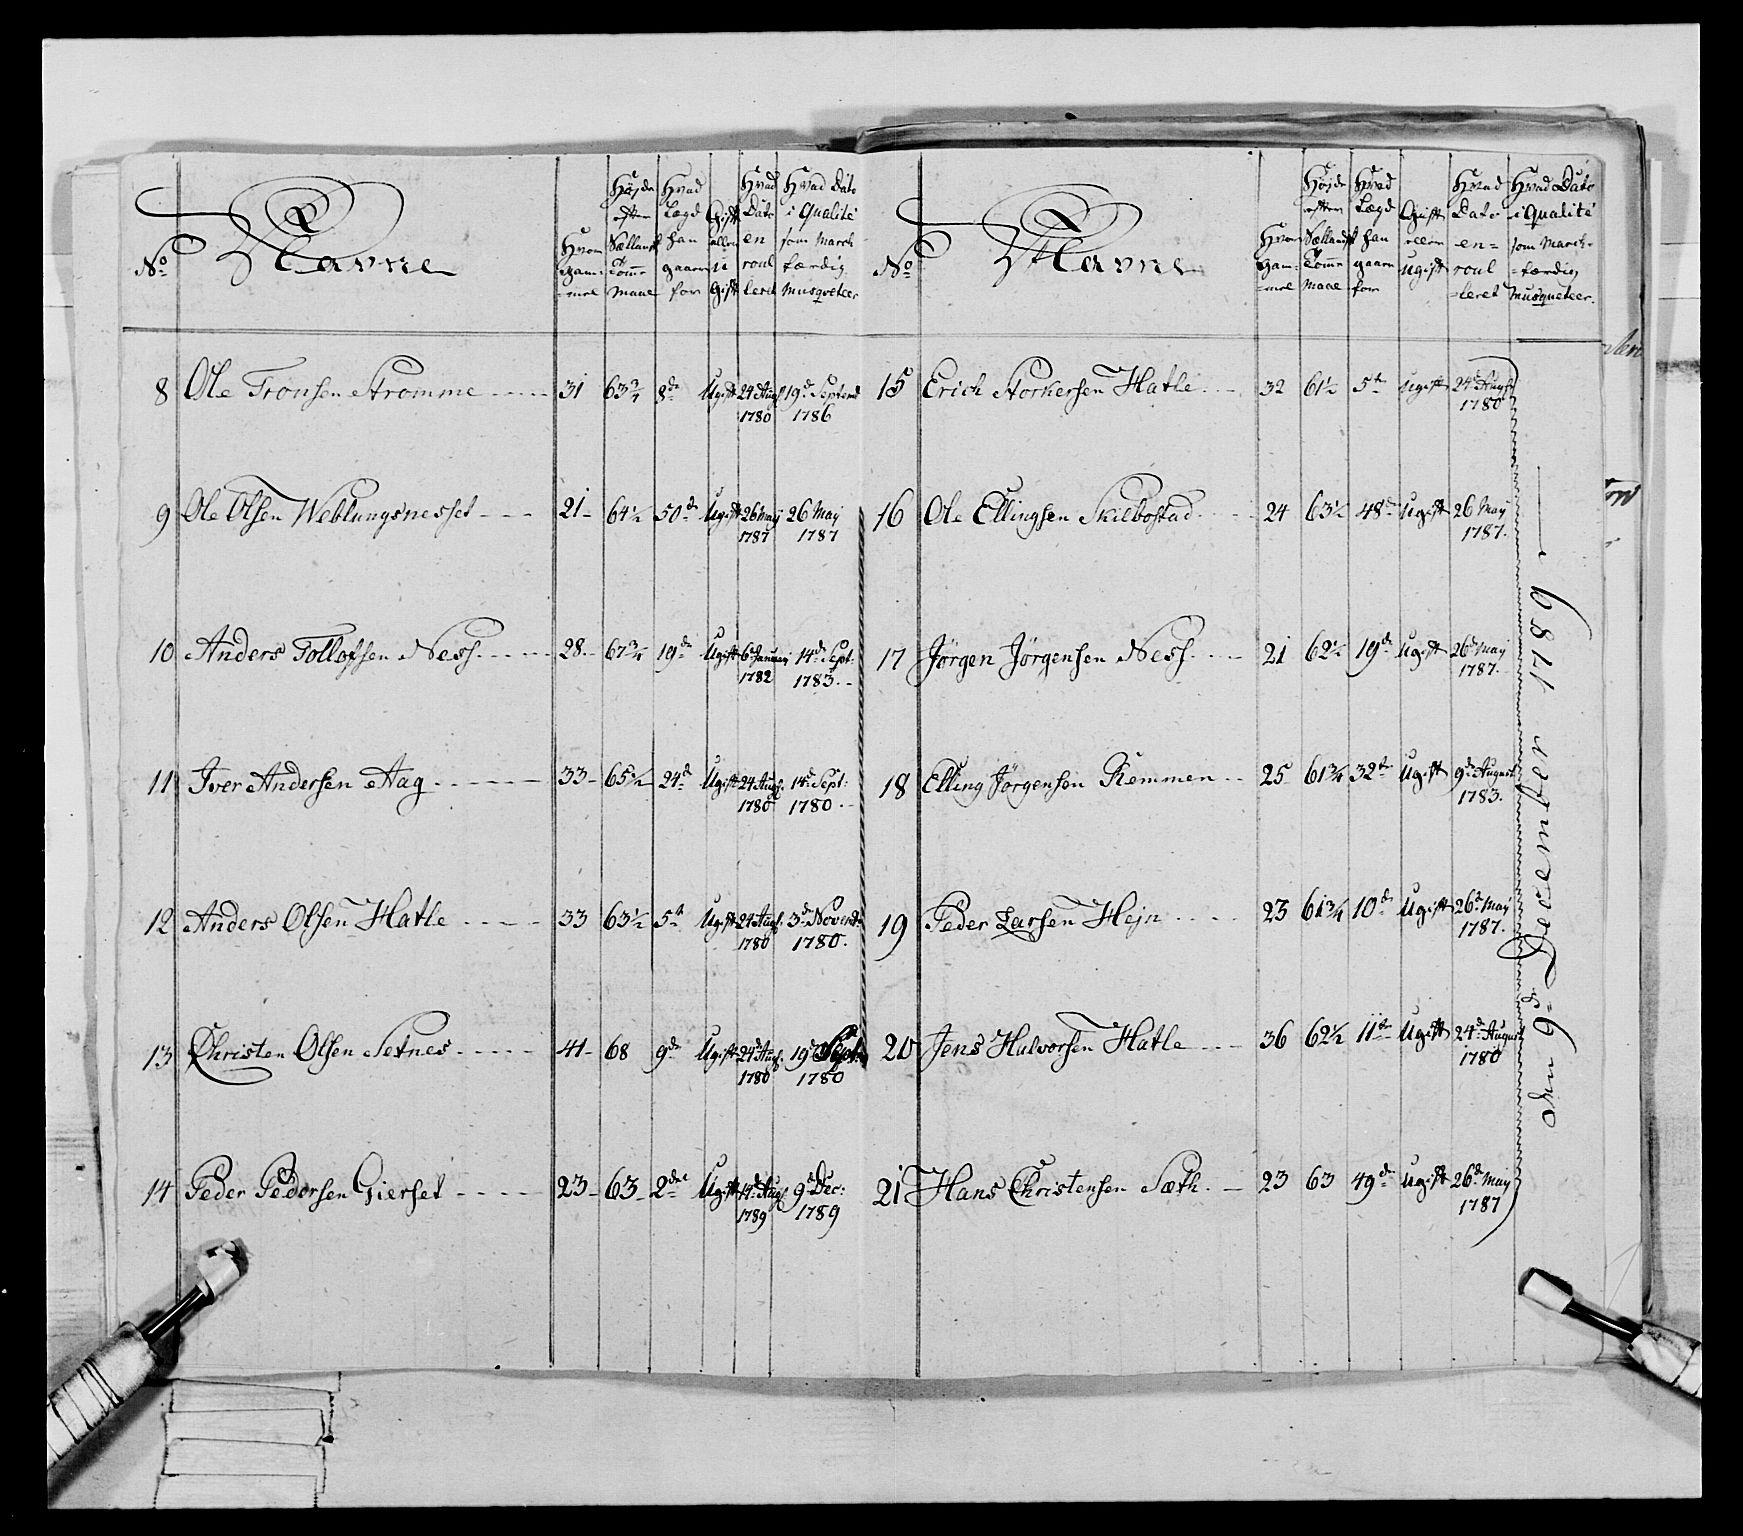 No
Navne
Hvor gam=mel
Højde efter Sællandsk Tomme Maal
Hvad Lægd han gaaer for
Gift eller uGift
Hvad Dato enroulleret
Hvad Dato i Qualité som Marchfærdig Musqueteer
8 Ole Tronsen Stromme 31 63¾ 8de Ugift 24 Aug 1780 19de Septemb 1786
9 Ole Olsen Weblungsnesset 21 64½ 50de Ugift 26 May 1787 26 May 1787
10 Anders Tollofsen Ness 28 67¾ 19de Ugift 6 Januarj 1782 14de Sept: 1783
11 Iver Andersen Aag 33 65½ 24de Ugift 24 Aug: 1780 14de Sept: 1780
12 Anders Olsen Hatle 33 63½ 5te Ugift 24 Aug: 1780 3de Novemb 1780.
13 Christen Olsen Setnes 41 68 9de Ugift 24de Aug: 1780 19de Sept: 1780
14 Peder Pedersen Gierset 23 63 2den Ugift 14de Aug: 1789 9de Dec: 1789
No
Navne
Hvor Gam=mel
Højde efter Sællandsk Tomme Maal
Hvad Lægd han gaaer for
Gift eller ugift
Hvad Dato en=roul=leret
Hvad Dato i Qualité som March=færdig Musqueteer.
15 Erich Storkersen Hatle 32 61½ 5te Ugift 24de Augst 1780
16 Ole Ellingsen Skilbostad 24 63½ 48de Ugift 26 May 1787.
17 Jørgen Jørgensen Ness 21 62½ 19de Ugift 26de May 1787.
18 Elling Jørgensen Remmen 25 61¾ 32te Ugift 9de August 1783.
19 Peder Larsen Hejn 23 61¾ 10de Ugift 26de May 1787.
20 Jens Halvorsen Hatle 36 62½ 11te Ugift 24de August 1780
21 Hans Christensen Sæth 23 63 49de Ugift 26de May 1787
den 9de December 1789